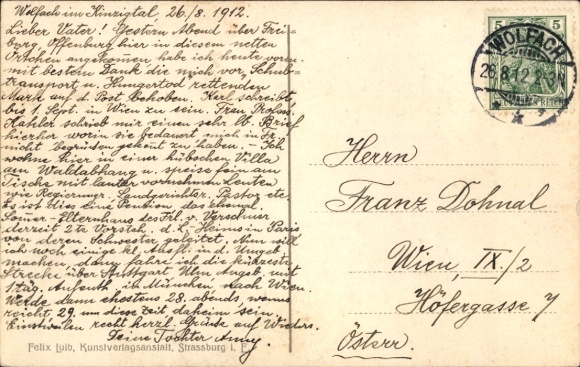 Wolfach im Kinzigtal, 26./8. 1912.
Lieber Vater! Gestern Abend über Frei-
burg, Offenburg hier in diesem netten
Örtchen angekommen habe ich heute vorm.
mit bestem Dank die mich vor Schub-
transport u. Hungertod rettenden
Mark auf d. Post behoben. Karl schreibt,
bis 1. Sept. in Wien zu sein. Frau Profess.
Kahler schrieb mir einen sehr lb. Brief
hierher worin sie bedauert mich in Fr.
nicht begrüßen gekonnt zu haben. - Ich
wohne hier in einer hübschen Villa
am Waldabhang u. speise fein am
Tische mit lauter vornehmen Leuten
wie Regierungsr. Landgerichtsr. Pastor etc.
Es ist dies eine Pension des ehemal.
Elternhaus des Frl. v. Verschuer
derzeit 2te Vorsteh. d. L. Heims in Paris
von deren Schwester geleitet. Nun will
ich noch einige kl. in d. Umgeb.
machen, dann fahre ich die kürzeste
Strecke über Stuttgart Ulm Augsb. mit
1 täg. Aufenth. in München nach Wien.
Werde dann ehestens 28. abends, wenns
reicht, 29. um diese Zeit daheim sein.
Einstweilen recht herzl. Grüße auf Wieders.
Deine Tochter Anny.
Felix Luib, Kunstverlagsanstalt, Strassburg i. E.
5 5
WOLFACH
26.8.12
DEUTSCHES REICH
Herrn
Franz Dohnal
Wien, IX./2
Höfergasse 7
Österr.